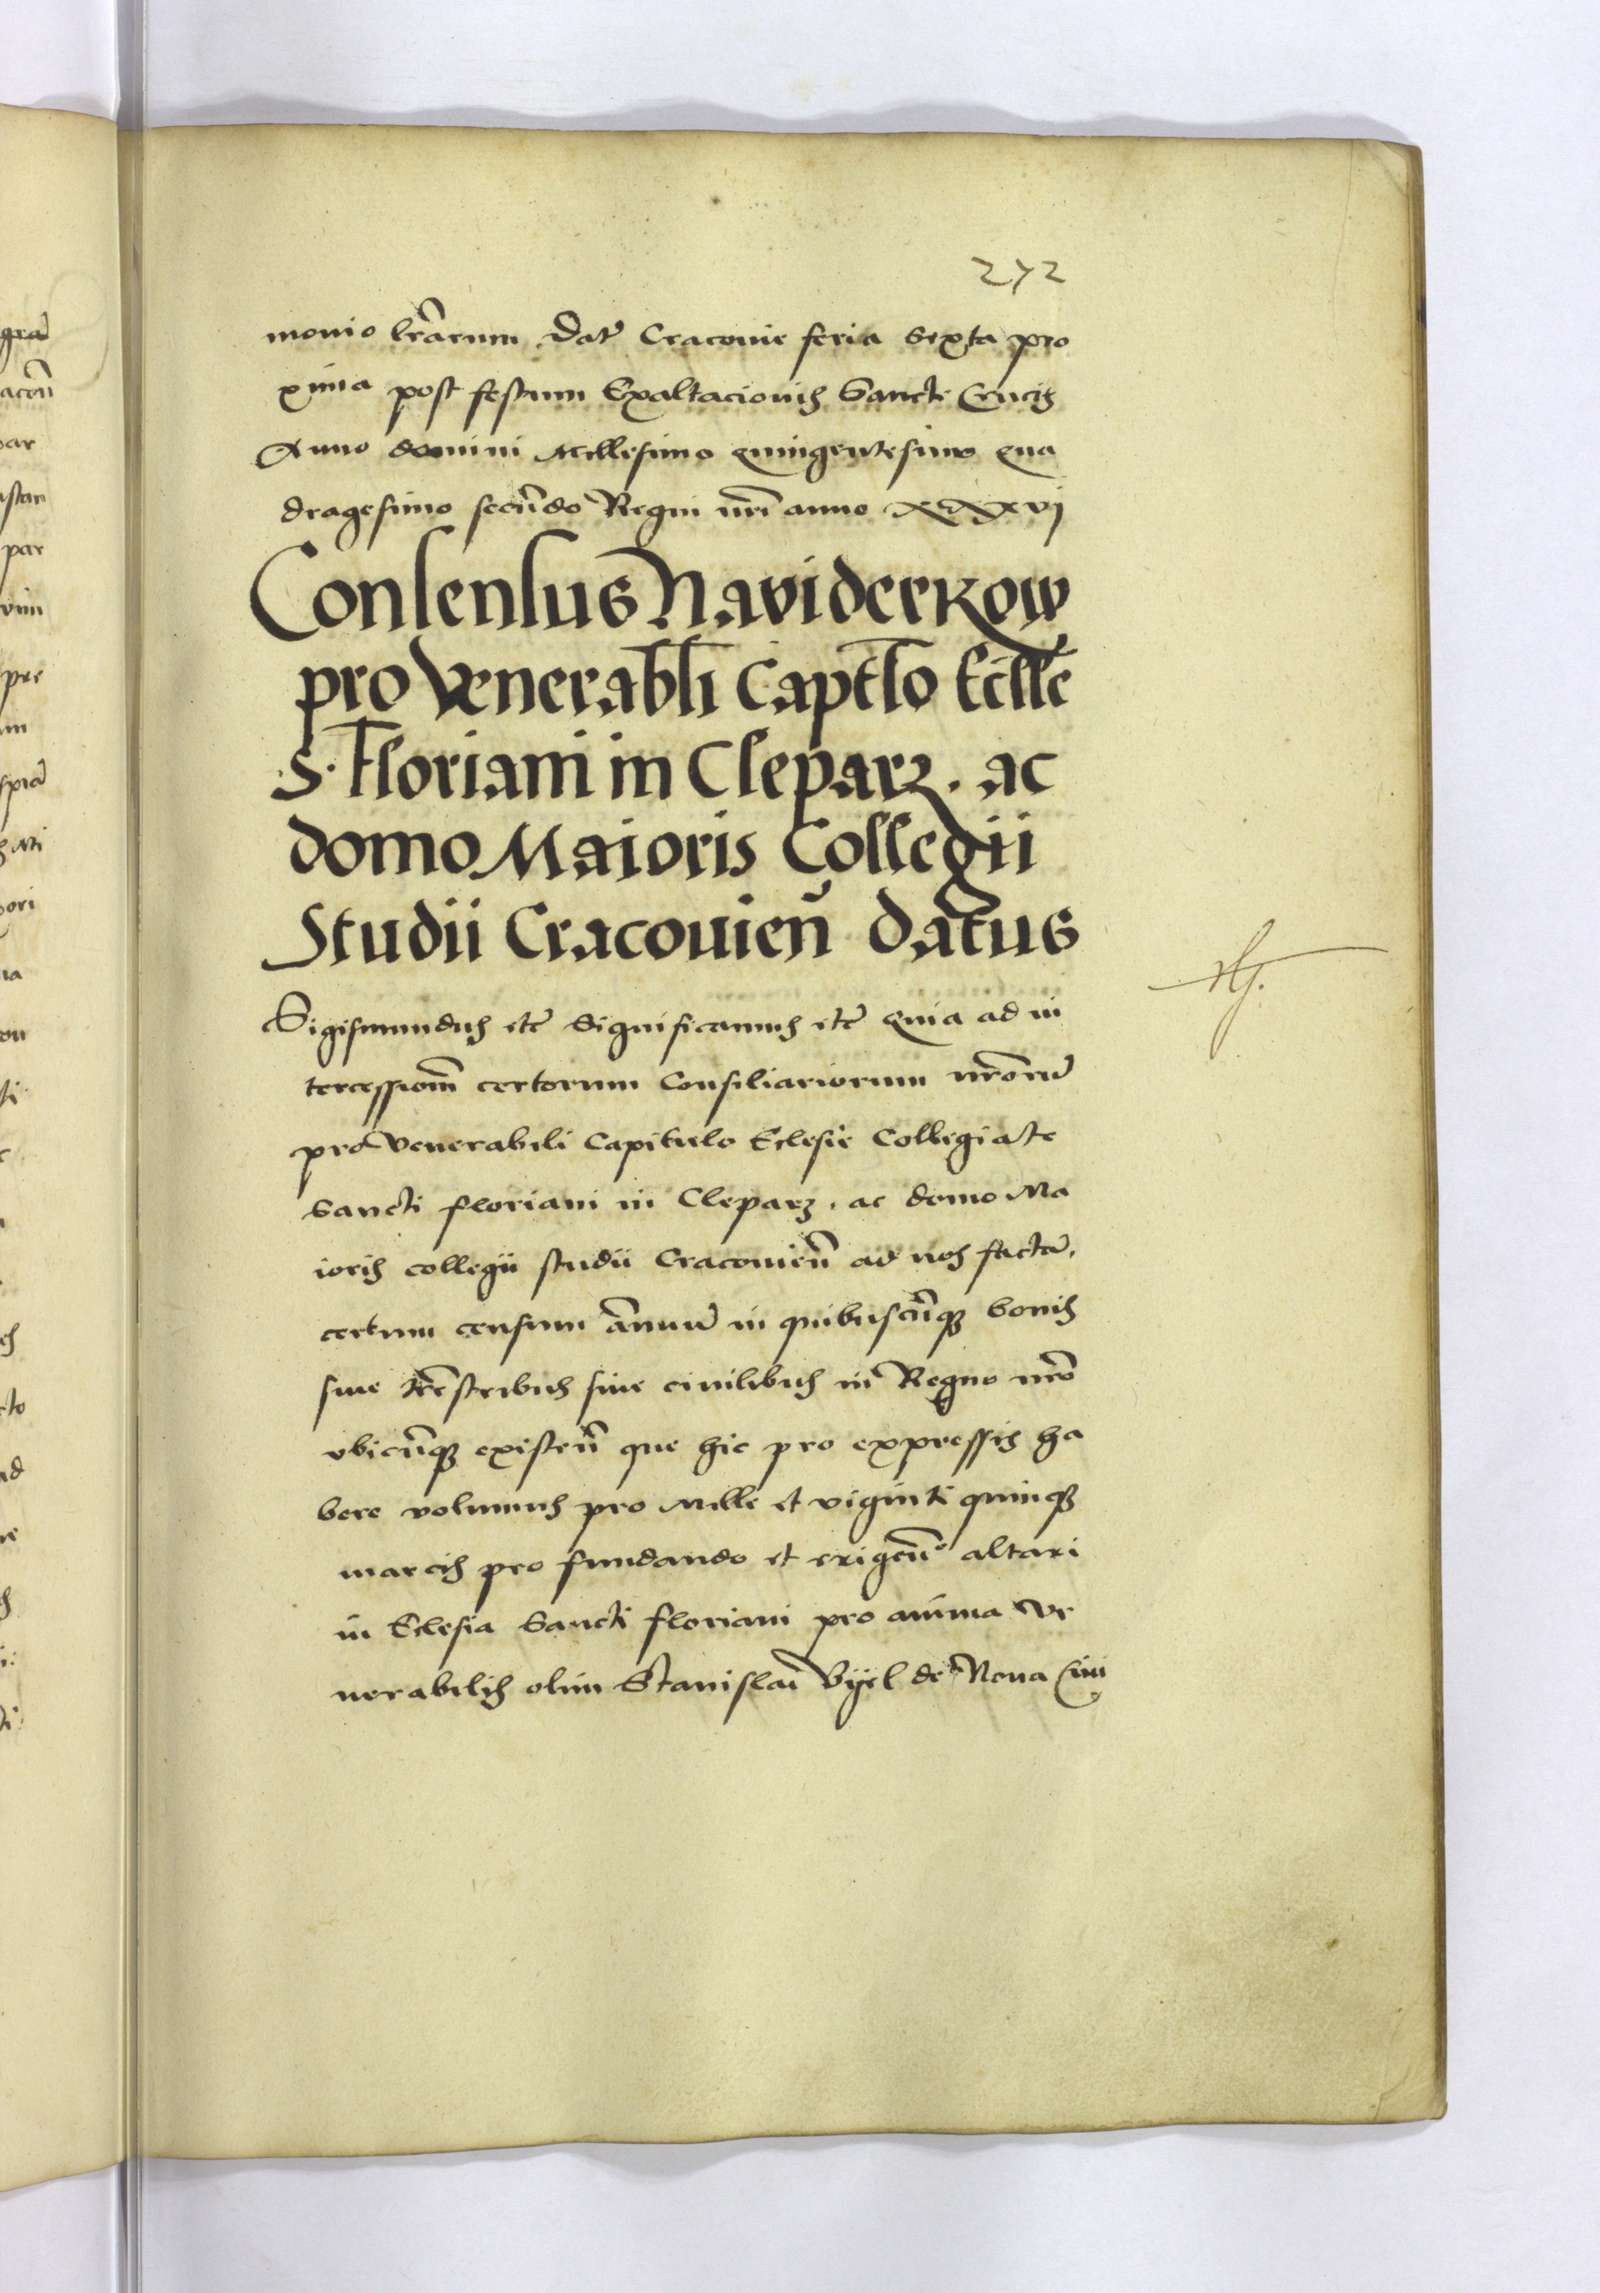 272
monio lrārum Dat̄ Cracovie feria sexta pro
xima post festum Exaltacionis Sancti Crucis
Anno domini Millesimo quingentesimo qua
dragesimo secūdo Regni nrī anno xxxvj
Consensus Naviderkow
pro Venerabl̄i Capt̄lo Ecll̄e
S. Floriani in Cleparz. ac
domo Maioris Collegii
Studii Cracovień datus
Sigismundus etc̄ Significamus etc̄ Quia ad in
tercessionē certorum Consiliariorum nr̄orū
pro Venerabili Capitulo Eclesie Collegiate
Sancti Floriani in Cleparz. ac domo Ma
ioris collegii studii Cracovień ad nos factā,
certum censum ānnuū in quibuscūq3 bonis
sive terrēstribus sive civilibus in Regno nrō
ubicūq3 existeń que hic pro expressis ha
bere volumus pro Mille et viginti quinq3
marcis pro fundando et erigeńo altari
in Eclesia Sancti Floriani pro anima Ve
nerabilis olim Stanislai Byel de Nova Civi